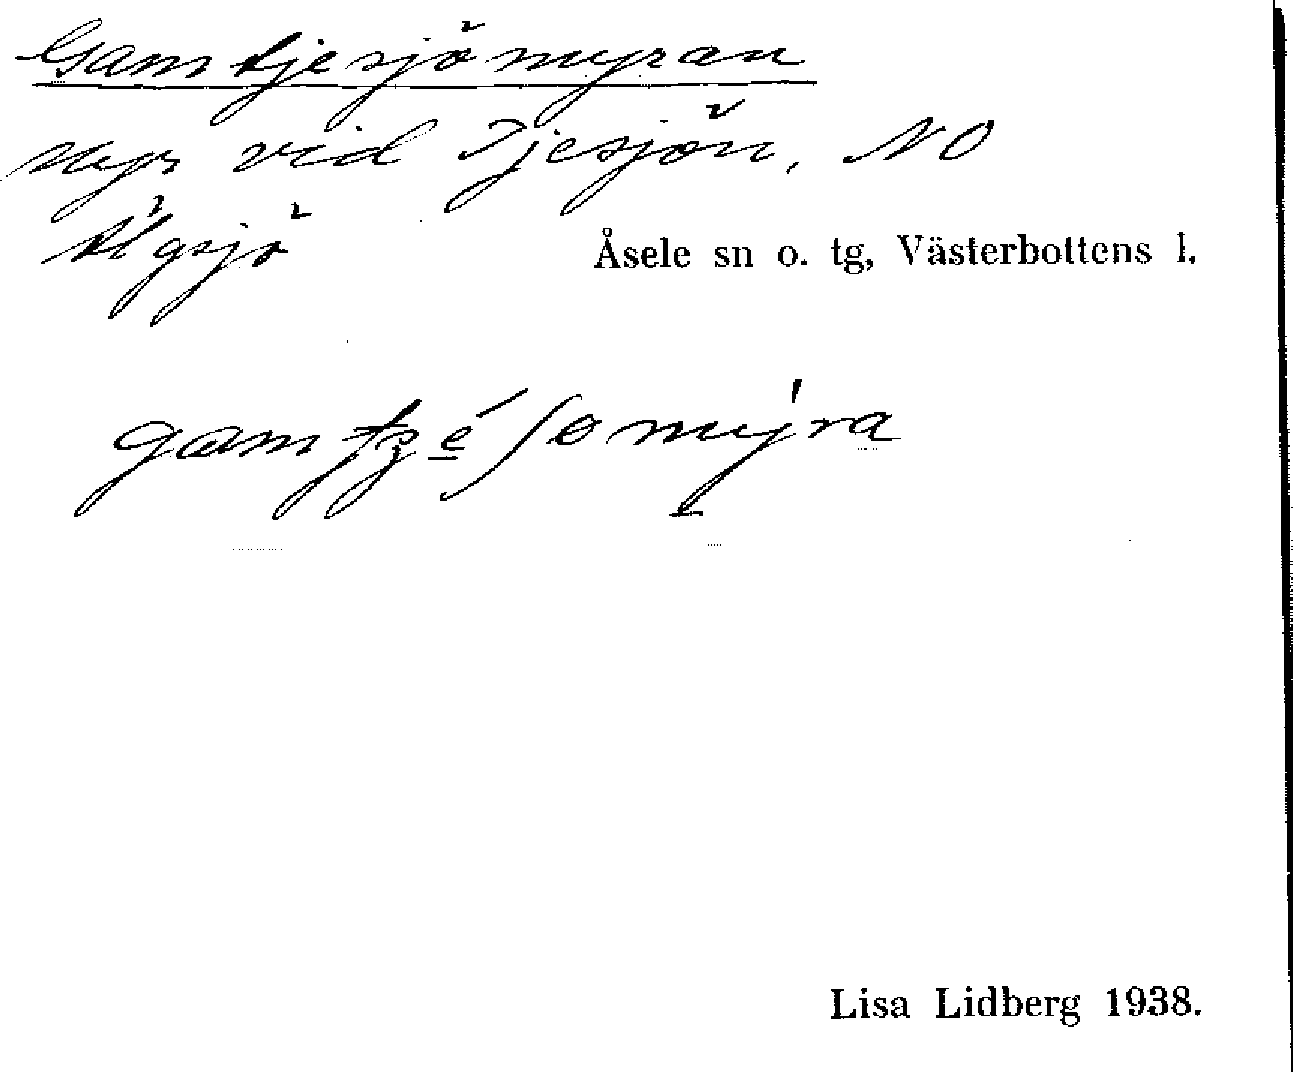 Gamtjesjömyran
myr vid Tjesjön, NO
Älgsjö
Åsele sn o. tg, Västerbottens l.
Lisa Lidberg 1938.